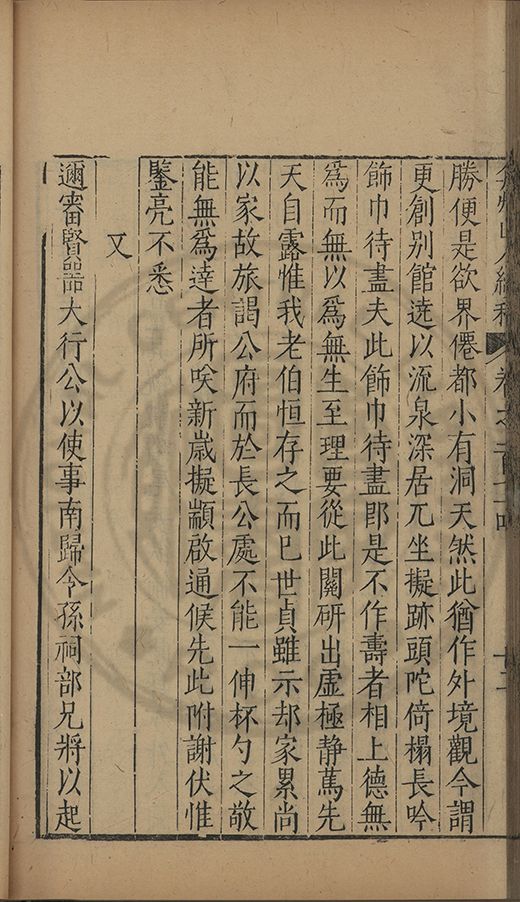 勝便是欲界僊都小有洞天然此猶作外境觀今謂
更創别館遶以流泉深居兀坐擬跡頭陀倚榻長吟
飾巾待盡夫此飾巾待盡卽是不作壽者相上德無
爲而無以爲無生至理要從此關研出虛極靜篤先
天自露惟我老伯恒存之而巳世貞雖示却家累尚
以家故旅謁公府而於長公處不能一伸杯勺之敬
能無爲達者所咲新歲擬顓啟通候先此附謝伏惟
鑒亮不悉
又
邇審賢器大行公以使事南歸令孫祠部兄將以起